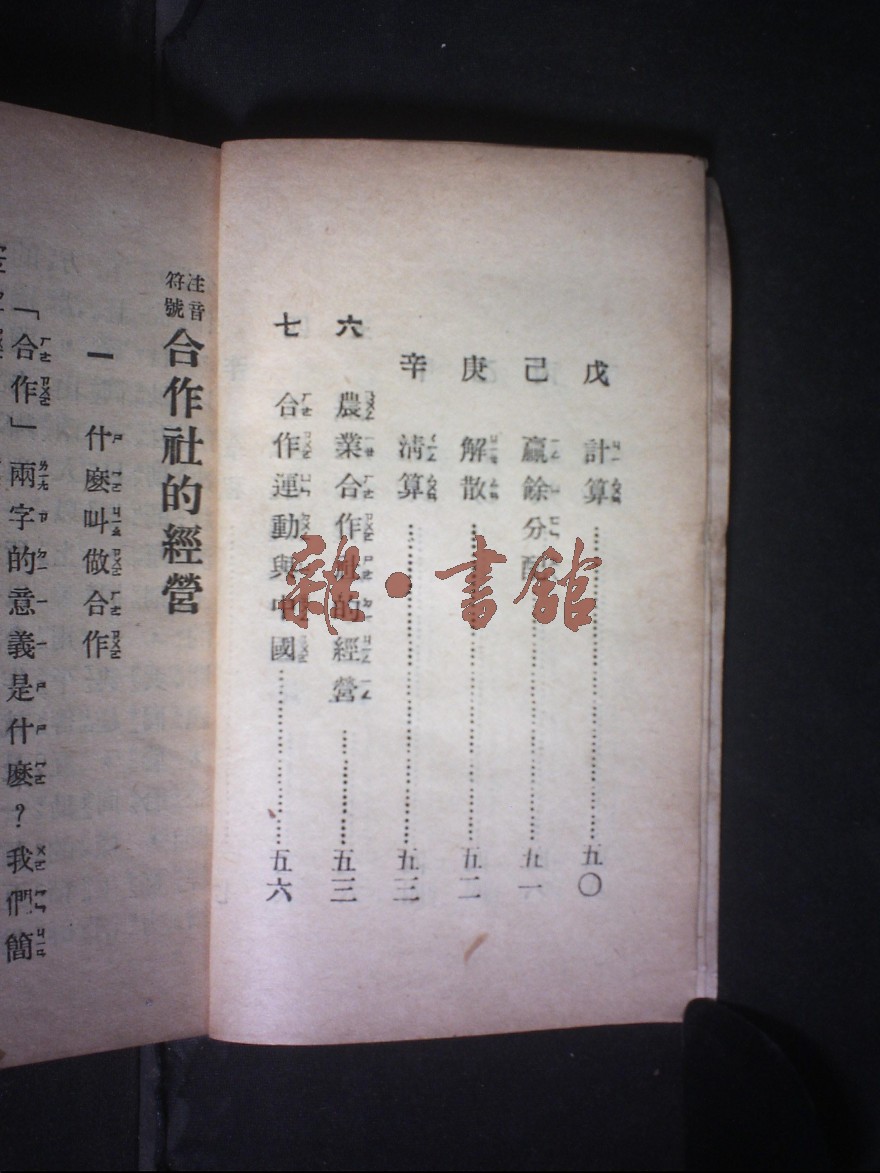 戊 計算……五〇
己 贏餘分配……五一
庚 解散……五二
辛 淸算……五三
六 農業合作社的經營……五三
七 合作運動與中國……五六
注音符號 合作社的經營
一 什麼叫做合作
「合作」兩字的意義是什麼?我們簡
雜·書館